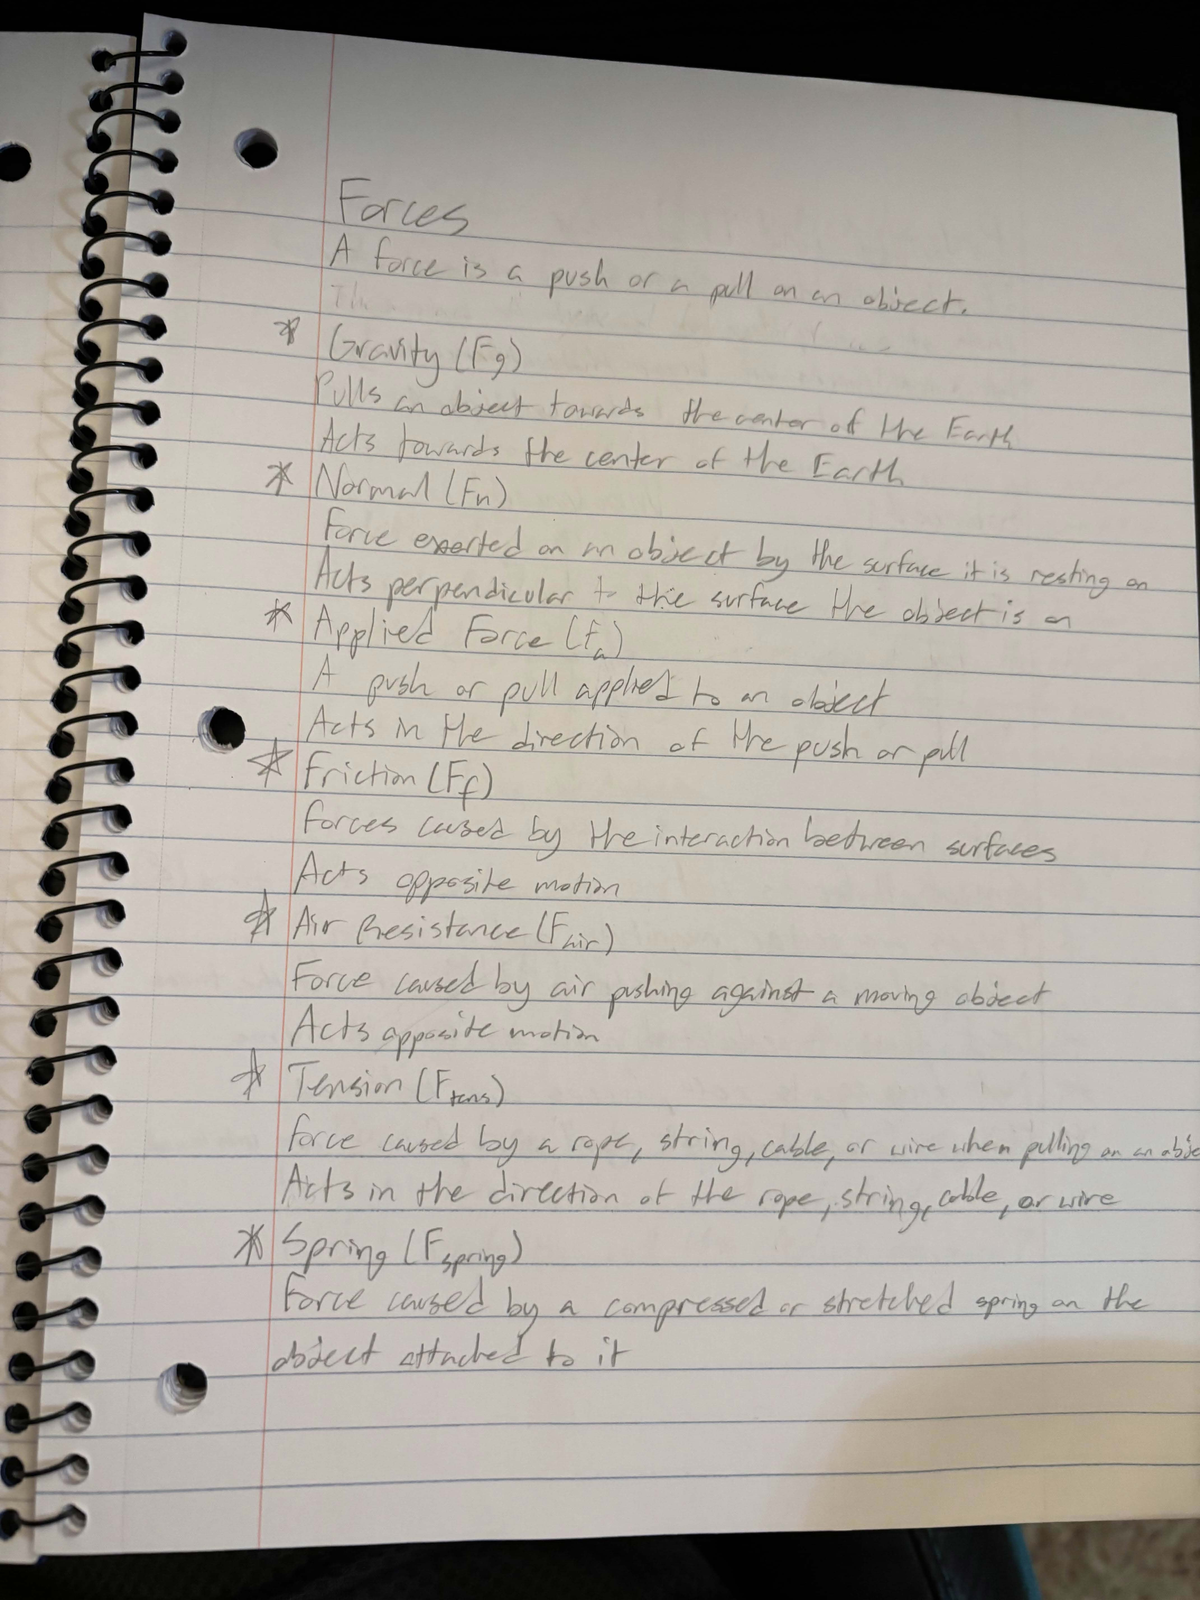 Forces
A force is a push or a pull on an object.
* Gravity (Fg)
Pulls an object towards the center of the Earth
Acts towards the center of the Earth
* Normal (Fn)
Force exerted on an object by the surface it is resting on
Acts perpendicular to the surface the object is on
* Applied Force (Fa)
A push or pull applied to an object
Acts in the direction of the push or pull
* Friction (Ff)
Forces caused by the interaction between surfaces
Acts opposite motion
* Air Resistance (Fair)
Force caused by air pushing against a moving object
Acts opposite motion
* Tension (Ftens)
Force caused by a rope, string, cable, or wire when pulling on an obje
Acts in the direction of the rope, string, cable, or wire
* Spring (Fspring)
Force caused by a compressed or stretched spring on the
object attached to it